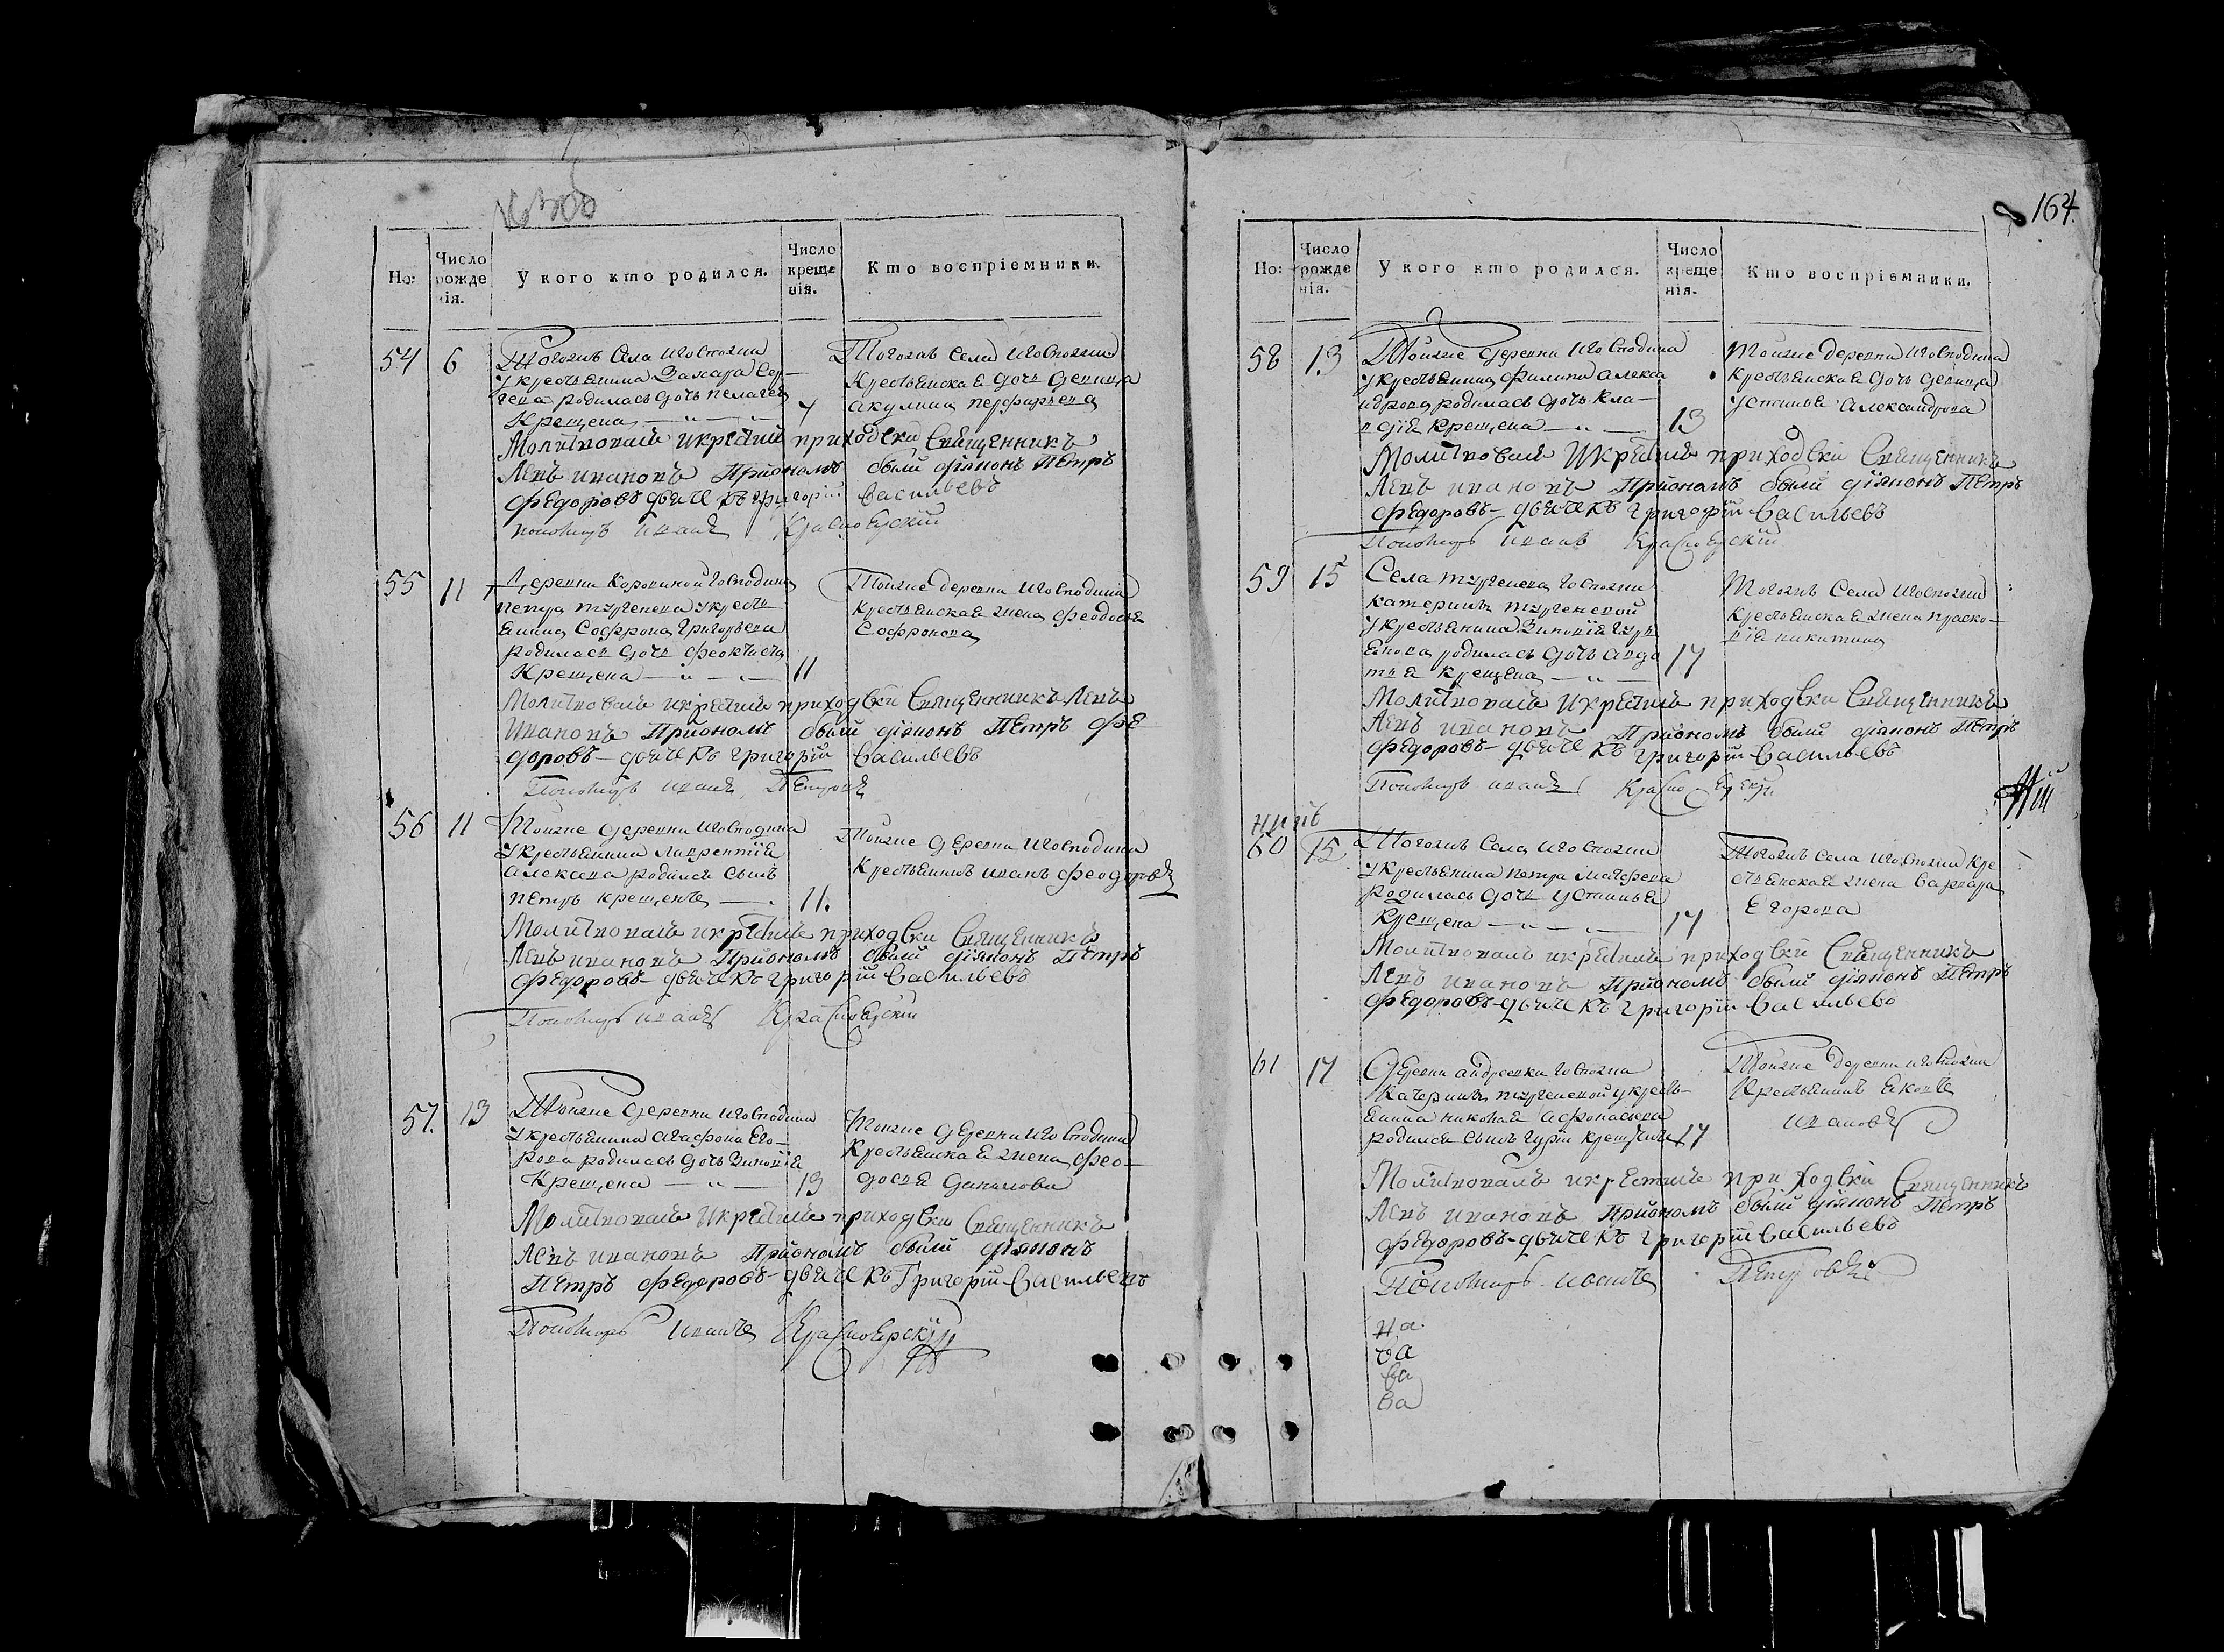 164.
Но:
Число рожденія.
У кого кто родился.
Число крещенія.
Кто воспріемники.
54
6
Тогожъ села и госпожи
у крестьянина Захара Сер-
геева родилась дочь Пелагея
Крещена
7
Тогожъ села и госпожи
крестьянская дочь девица
Акулина Перфирьева
Молитвовалъ и крестилъ приходски Священникъ
Левъ Ивановъ При ономъ были діяконъ Петръ
Федоровъ дьячекъ Григорій Васильевъ
пономарь Иванъ Красноярскій
55
11
Деревни Коровиной господина
Петра Тургенева у кресть
янина Софрона Григорьева
родилась дочь Феоктиста
Крещена
11
Тойже деревни и господина
крестьянская жена Феодосья
Софронова
Молитвовалъ и крестилъ приходски Священникъ Левъ
Ивановъ При ономъ были діяконъ Петръ Фе
доровъ - дьячекъ Григорій Васильевъ
Пономарь Иванъ Петровъ
56
11
Тойже деревни и господина
у крестьянина Лаврентія
Алексева родился сынъ
Петръ крещенъ
11.
Тойже деревни и господина
Крестьянинъ Иванъ Феодоровъ
Молитвовалъ и крестилъ приходски Священникъ
Левъ Ивановъ При ономъ были діяконъ Петръ
Федоровъ - дьячекъ Григорій Васильевъ
Пономарь Иванъ Красноярскій
57.
13
Тойже деревни и господина
у крестьянина Агафона Его-
рова родилась дочь Зиновія
Крещена
13
Тойже деревни и господина
Крестьянская жена Фео-
досья Данилова
Молитвовалъ и крестилъ приходски Священникъ
Левъ Ивановъ При ономъ были діяконъ
Петръ Федоровъ - дьячекъ Григорій Васильевъ
Пономарь Иванъ Красноярскій
Но:
Число рожденія.
У кого кто родился.
Число крещенія.
Кто воспріемники.
58
13
Тойже деревни и господина
у крестьянина Филипа Алекса
ндрова родилась дочь Кла-
вдія крещена
13
Тойже деревни и господина
крестьянская дочь девица
Устинья Александрова
Молитвовалъ и крестилъ приходски Священникъ
Левъ Ивановъ При ономъ были діяконъ Петръ
Федоровъ - дьячекъ Григорій Васильевъ
Пономарь Иванъ Красноярскій
59
15
Села Тургенева госпожи
Катерины Тургеневой
у крестьянина Зиновія Гурь
янова родилась дочь Авдо
тья крещена
17
Тогожъ села и госпожи
крестьянская жена Праско-
вія Никитина
Молитвовалъ и крестилъ приходски Священникъ
Левъ Ивановъ При ономъ были діяконъ Петръ
Федоровъ - дьячекъ Григорій Васильевъ
Пономарь Иванъ Красноярскій
60
15
Тогожъ села и госпожи
у крестьянина Петра Матфева
родилась дочь Устинья
Крещена
17
Тогожъ села и госпожи кре
стьянская жена Варвара
Егорова
Молитвовалъ и крестилъ приходски Священникъ
Левъ Ивановъ При ономъ были діяконъ Петръ
Федоровъ - дьячекъ Григорій Васильевъ
61
17
Деревни Андреевки госпожи
Катерины Тургеневой у кресть-
янина Николая Афонасьева
родился сынъ Гурій крещенъ
17
Тойже деревни и госпожи
Крестьянинъ Яковъ
Ивановъ
Молитвовалъ и крестилъ приходски Священникъ
Левъ Ивановъ При ономъ были діяконъ Петръ
Федоровъ - дьячекъ Григорій Васильевъ
Пономарь Иванъ Петровъ
на
ва
ва